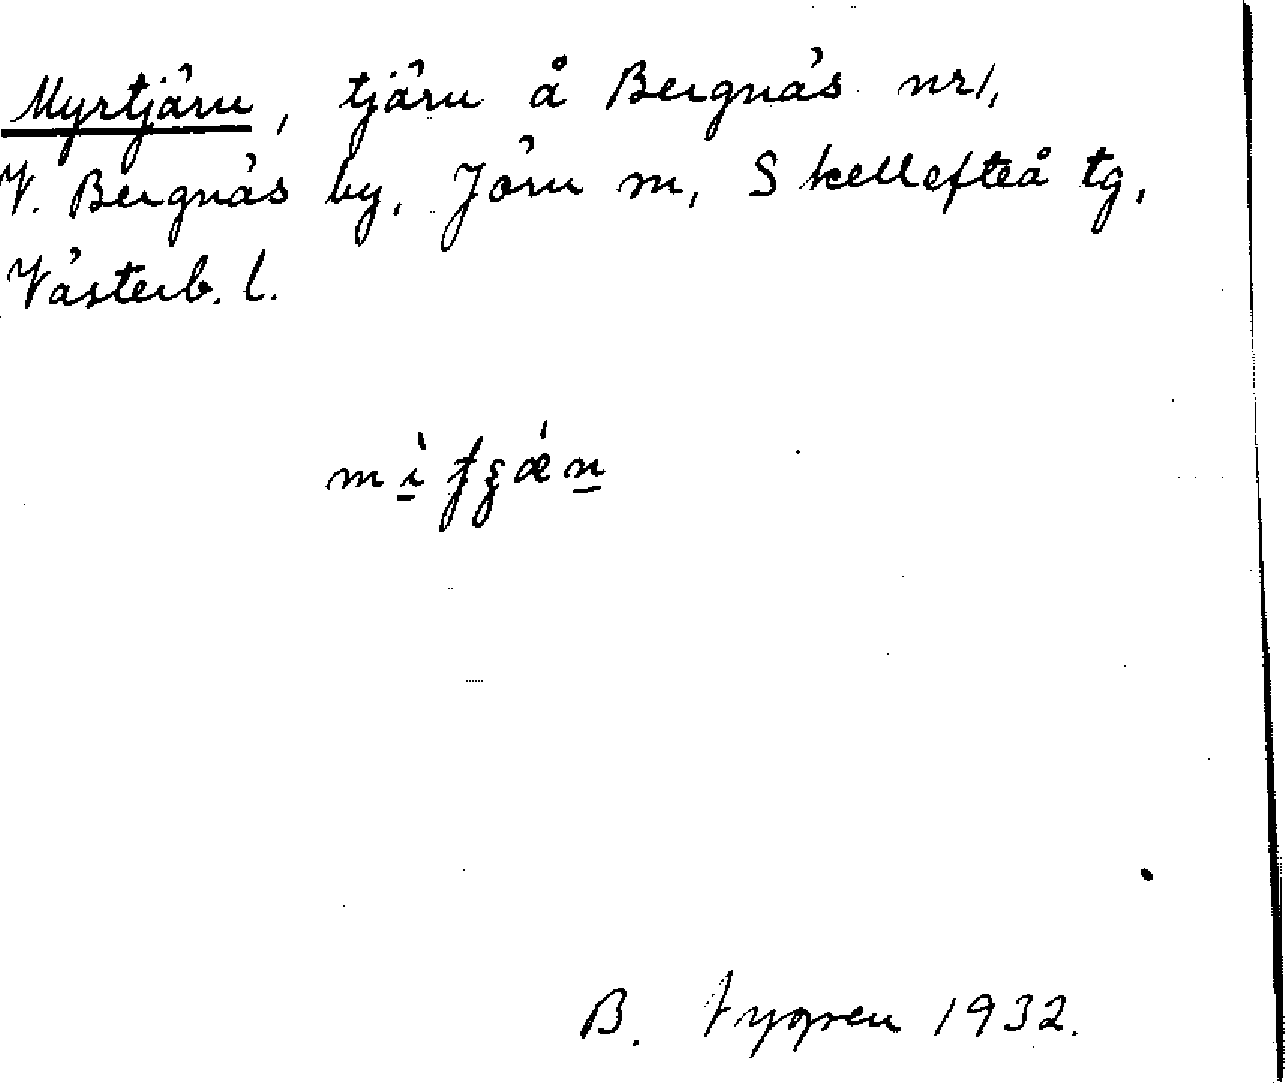 Myrtjärn, tjärn å Bergnäs nr 1,
V. Bergnäs by, Jörn sn, Skellefteå tg,
Västerb. l.
B. 1932.